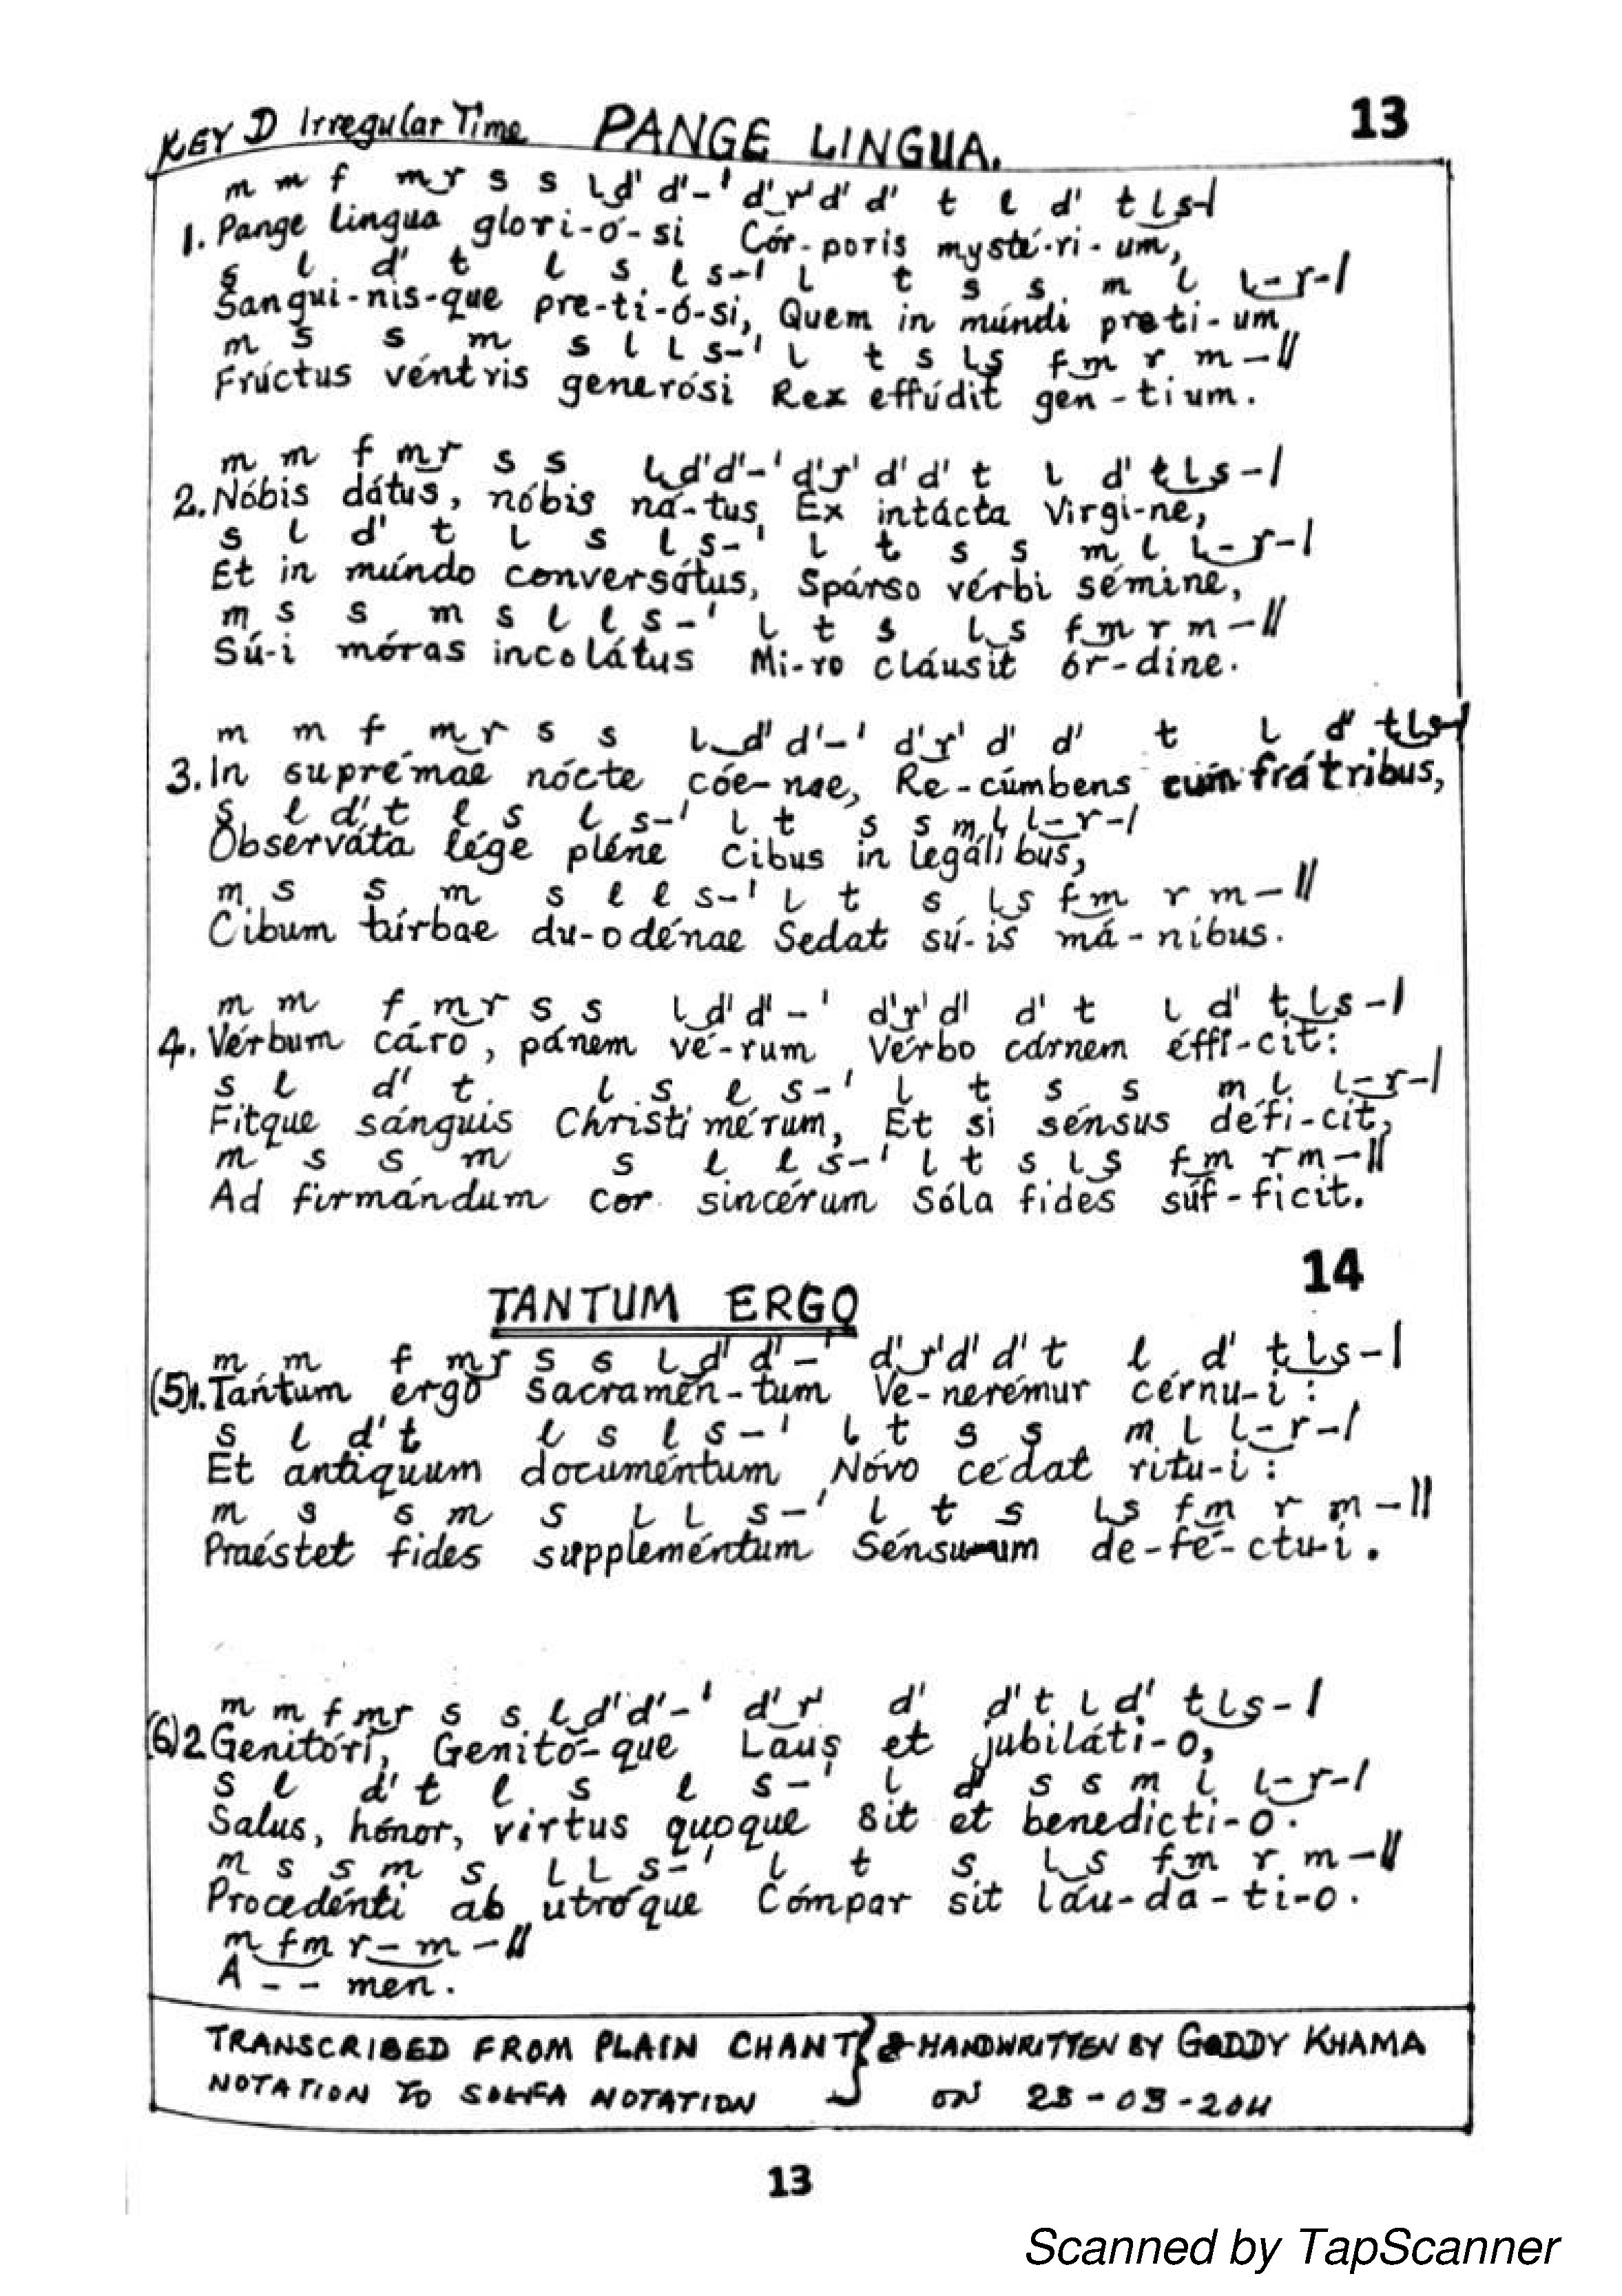 KEY D Irregular Time PANGE LINGUA. 13
m m f mr s s ld' d'-' d'r'd' d' t l d' tls-|
1. Pange lingua glori-ó-si Cór-poris mysté-ri-um,
s l d' t l s l s-' l t s s m l l-r-|
Sangui-nis-que pre-ti-ó-si, Quem in múndi preti-um,
m s s m s l l s-' l t s ls fm r m-||
Frúctus véntris generósi Rex effúdit gen-tium.
m m f mr s s ld'd'-' d'r' d'd' t l d' tls-|
2. Nóbis dátus, nóbis ná-tus, Ex intácta Virgi-ne,
s l d' t l s l s-' l t s s m l l-r-|
Et in múndo conversátus, Spárso vérbi sémine,
m s s m s l l s-' l t s ls fm r m-||
Sú-i móras incolátus Mi-ro cláusit ór-dine.
m m f mr s s ld' d'-' d'r' d' d' t l d' tls-|
3. In suprémae nócte cóe-nae, Re-cúmbens cum frátribus,
s l d' t l s l s-' l t s s m l l-r-|
Observáta lége pléne Cibus in legálibus,
m s s m s l l s-' l t s ls fm r m-||
Cibum túrbae du-odénae Sedat sú-is má-nibus.
m m f mr s s ld'd'-' d'r'd' d' t l d' tls-|
4. Vérbum cáro, pánem vé-rum Vérbo cárnem éffi-cit:
s l d' t l s l s-' l t s s m l l-r-|
Fitque sánguis Christi mérum, Et si sénsus défi-cit,
m s s m s l l s-' l t s ls fm r m-||
Ad firmándum cor sincérum Sóla fides súf-ficit.
14
TANTUM ERGO
m m f mr s s ld' d'-' d'r'd' d' t l d' tls-|
(5)1. Tantum ergo Sacramén-tum Ve-nerémur cérnu-i:
s l d' t l s l s-' l t s s m l l-r-|
Et antiquum documéntum Nóvo cédat ritu-i:
m s s m s l l s-' l t s ls fm r m-||
Praéstet fides suppleméntum Sénsuum de-fé-ctu-i.
m m f mr s s ld'd'-' d'r' d' d' t l d' tls-|
(6)2 Genitóri, Genitó-que Laus et jubiláti-o,
s l d' t l s l s-' l d' s s m l l-r-|
Salus, hónor, virtus quoque Sit et benedicti-o.
m s s m s l l s-' l t s ls fm r m-||
Procedénti ab utróque Cómpar sit láu-da-ti-o.
m fm r-m-||
A - - men.
TRANSCRIBED FROM PLAIN CHANT } & HANDWRITTEN BY GODDY KHAMA
NOTATION TO SOLFA NOTATION } ON
13
Scanned by TapScanner